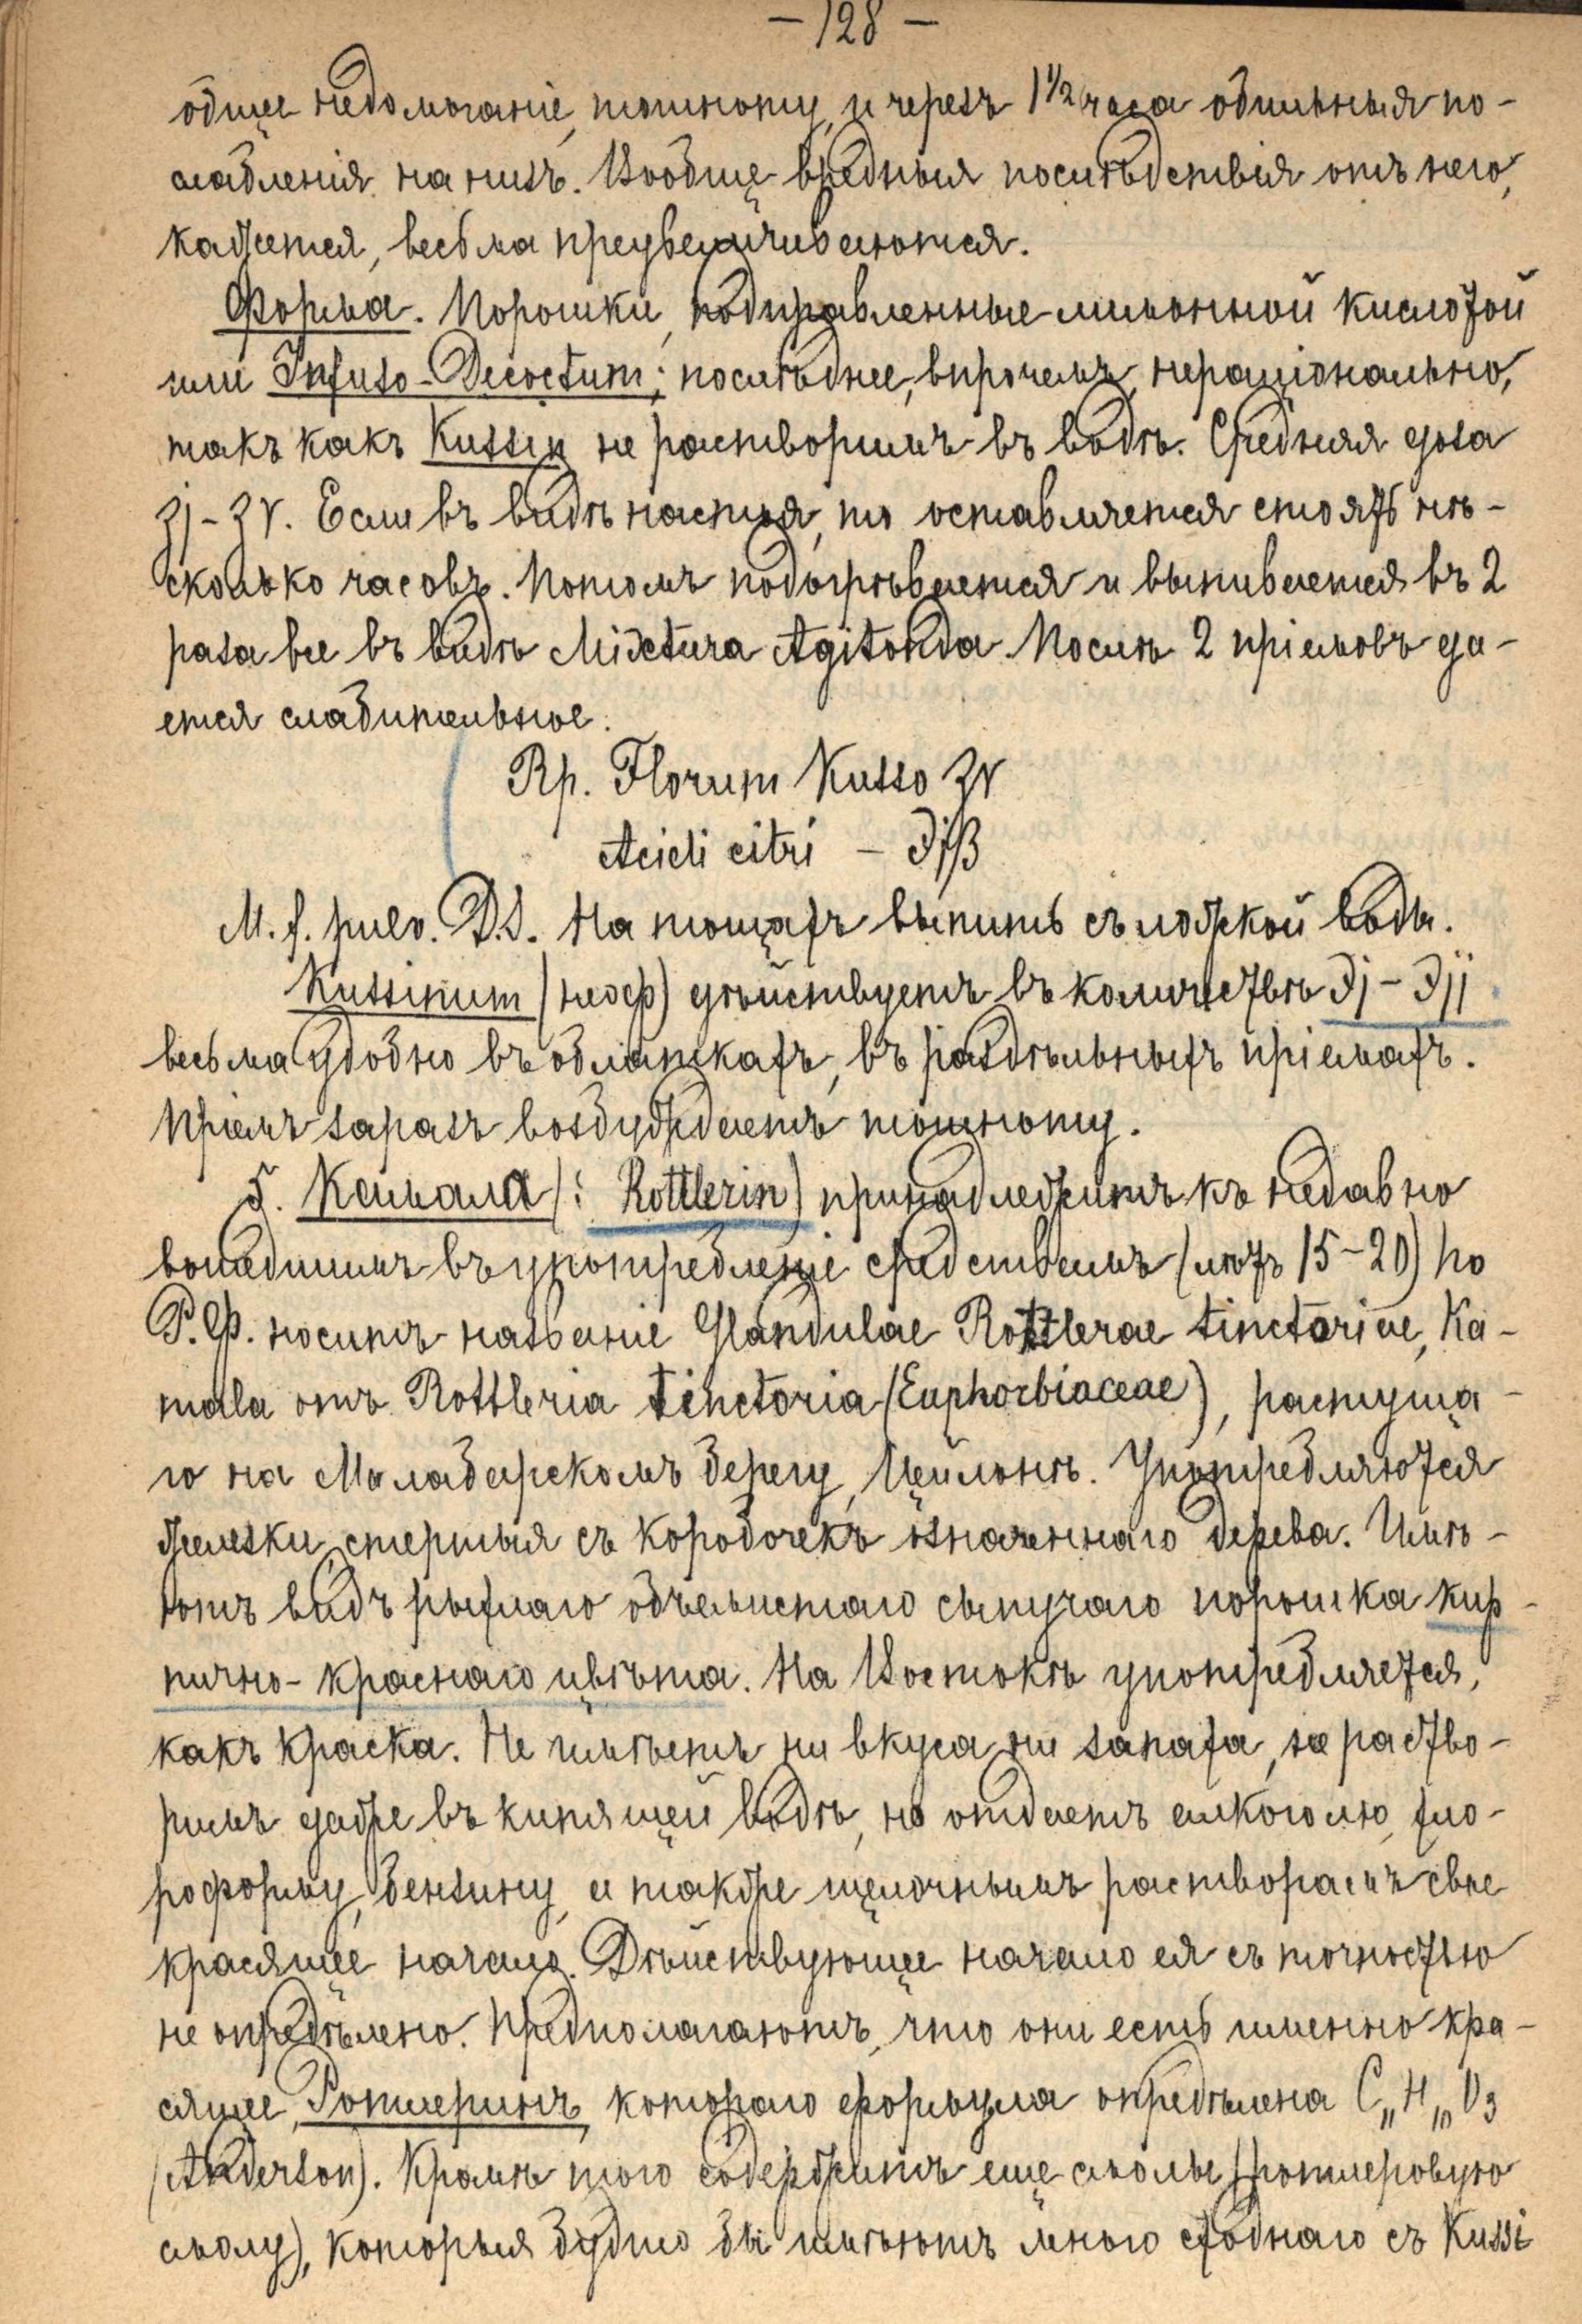 — 128 —
общее недомоганіе, тошноту, и черезъ 1 1/2 часа обильныя по-
слабленія на низъ. Вообще вредныя послѣдствія отъ него,
кажется, весьма преувеличиваются.
Форма. Порошки, подправленные лимонной кислотой
или Infuso-Decoctum; послѣднее, впрочемъ, нераціонально,
такъ какъ Kussin не растворимъ въ водѣ. Средняя доза
ʒj - ʒV. Если въ видѣ настоя, то оставляется стоять нѣ-
сколько часовъ. Потомъ подогрѣвается и выпивается въ 2
раза все въ видѣ Mixtura Agitanda. Послѣ 2 пріемовъ да-
ется слабительное.
Rp. Florum Kusso ʒV
Acidi citri — ℈jβ
M. f. pulv. D.S. На тощахъ выпить съ ложкой воды.
Kussinum (неоф) дѣйствуетъ въ количествѣ ℈j - ℈jj
весьма удобно въ облаткахъ, въ раздѣльныхъ пріемахъ.
Пріемъ заразъ возбуждаетъ тошноту.
5. Камала (: Rottlerin) принадлежитъ къ недавно
вошедшимъ въ употребленіе средствамъ (лѣтъ 15-20) По
Р. Ф. носитъ названіе Glandulae Rottlerae tinctoriae, Ka-
mala отъ Rottleria tinctoria (Euphorbiaceae), растуща-
го на Малабарскомъ берегу, Цейлонѣ. Употребляются
железки, стертыя съ коробочекъ означеннаго дерева. Имѣ-
ютъ видъ рыхлаго объемистаго сыпучаго порошка кир-
пично-краснаго цвѣта. На Востокѣ употребляется,
какъ краска. Не имѣетъ ни вкуса ни запаха, не раство-
римъ даже въ кипящей водѣ, но отдаетъ алкоголю, хло-
роформу, бензину, а также щелочнымъ растворамъ свое
красящее начало. Дѣйствующее начало ея съ точностью
не опредѣлено. Предполагаютъ, что они есть именно кра-
сящее, Ротлеринъ, котораго формула опредѣлена C₁₁H₁₀O₃
(Anderson). Кромѣ того содержитъ еще смолы (ротлеровую
смолу), которыя будто бы имѣютъ много сходнаго съ Kussi